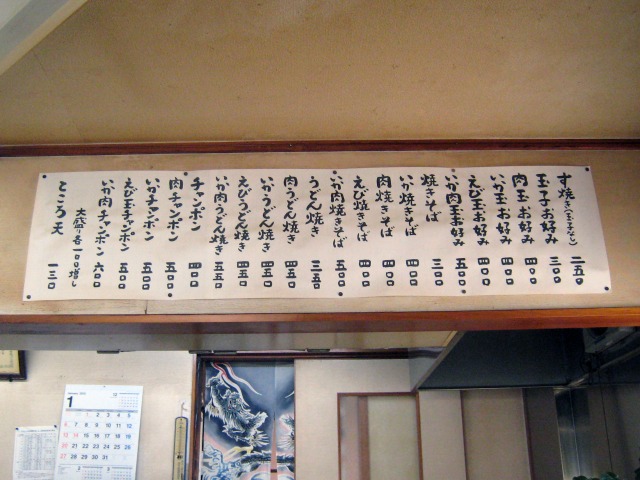 す焼き(玉子なし) 二五〇
玉子お好み 三〇〇
肉玉お好み 四〇〇
いか玉お好み 四〇〇
えび玉お好み 四〇〇
いか肉玉お好み 五〇〇
焼きそば 三〇〇
いか焼きそば 四〇〇
肉焼きそば 四〇〇
えび焼きそば 四〇〇
いか肉焼きそば 五〇〇
うどん焼き 三五〇
肉うどん焼き 四五〇
いかうどん焼き 四五〇
えびうどん焼き 四五〇
いか肉うどん焼き 五五〇
チャンポン 四〇〇
肉チャンポン 五〇〇
いかチャンポン 五〇〇
えび玉チャンポン 五五〇
いか肉チャンポン 六〇〇
大盛り各一〇〇増し
ところ天 一三〇
1
1 2 3 4 5
6 7 8 9 10 11 12
13 14 15 16 17 18 19
20 21 22 23 24 25 26
27 28 29 30 31
2
3